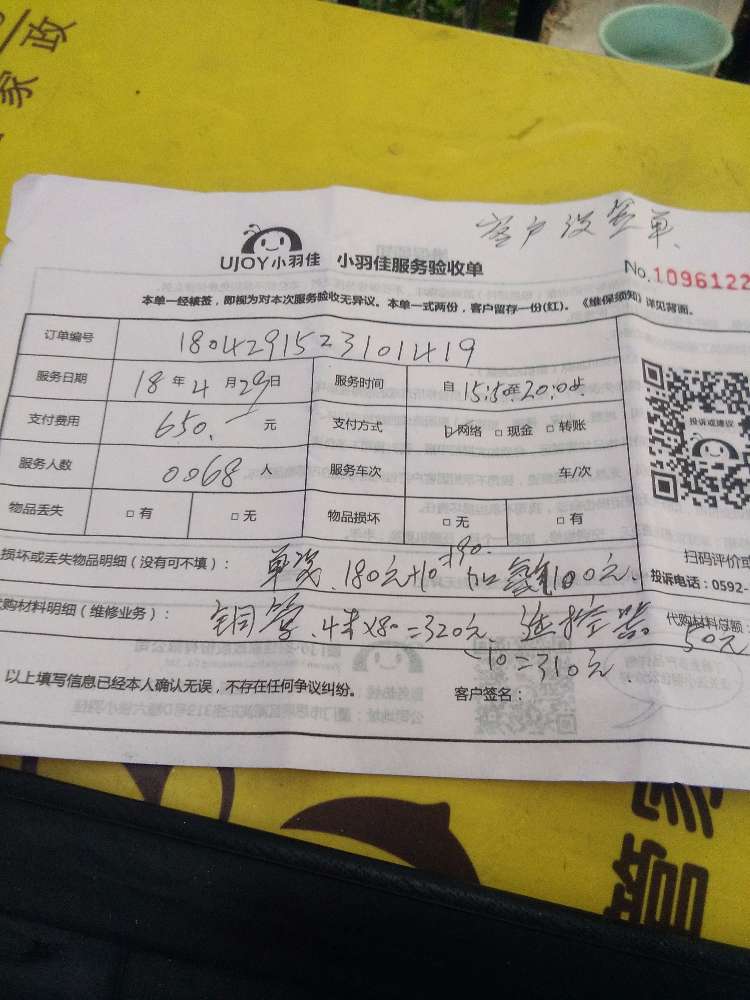 政
家
客户没签单
UJOY小羽佳 小羽佳服务验收单
No.1096122
本单一经接签，即视为对本次服务验收无异议。本单一式两份，客户留存一份(红)。《维保须知》详见背面。
订单编号 1804291523101419
服务日期 18 年 4 月 29 日 服务时间 自 15:50 至 20:00止
支付费用 650. 元 支付方式 □ 网络 □ 现金 □ 转账
投诉或建议
服务人数 0068 人 服务车次 车/次
物品丢失 □ 有 □ 无 物品损坏 □ 无 □ 有
扫码评价或
损坏或丢失物品明细（没有可不填）： 单装 180元+10=190. 加氟100元.
投诉电话：0592-
代购材料明细（维修业务）： 铜管.4米×80=320元 遥控器 50元
代购材料总额：
-10=310元
以上填写信息已经本人确认无误，不存在任何争议纠纷。 客户签名：
管家